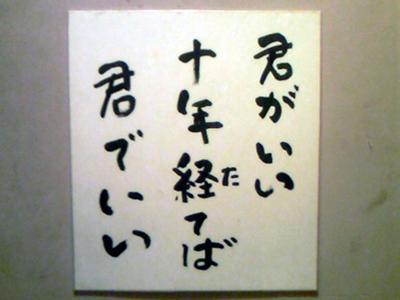 君がいい
十年経てば
た
君でいい